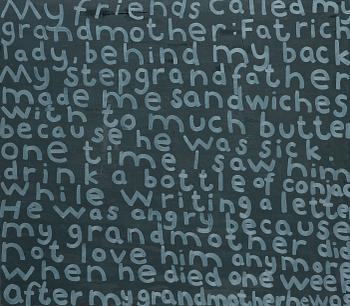 My friends called my
grandmother: Fat rich
lady, behind my back
My stepgrandfather
made me sandwiches
with to much butter
because he was sick.
one time I saw him
drink a bottle of cognac
while writing a letter
He was angry because
my grandmother did
not love him anymore
when he died one week
after my grandmother he was